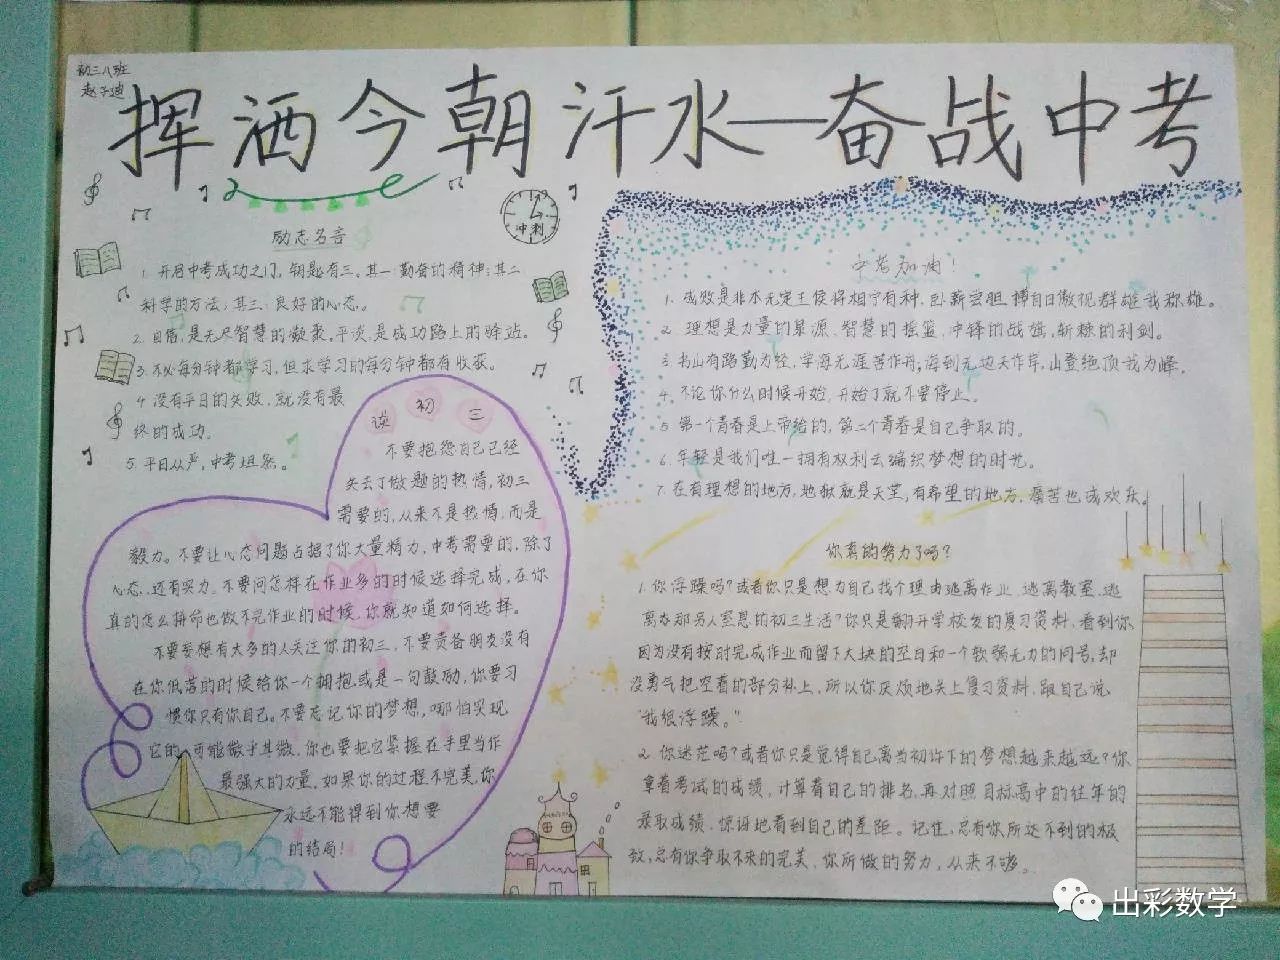 初三八班
赵子迪
挥洒今朝汗水—奋战中考
冲刺
励志名言
1. 开启中考成功之门，钥匙有三。其一：勤奋的精神；其二：
科学的方法；其三：良好的心态。
2. 自信，是无尽智慧的凝聚。平淡，是成功路上的驿站。
3. 不必每分钟都学习，但求学习的每分钟都有收获。
4. 没有平日的失败，就没有最
终的成功。
5. 平日从严，中考坦然。
谈初三
不要抱怨自己已经
失去了做题的热情，初三
需要的，从来不是热情，而是
毅力。不要让心态问题占据了你大量精力，中考需要的，除了
心态，还有实力。不要问怎样在作业多的时候选择完成，在你
真的怎么拼命也做不完作业的时候，你就知道如何选择。
不要妄想有太多的人关注你的初三，不要责备朋友没有
在你低落的时候给你一个拥抱或是一句鼓励，你要习
惯你只有你自己。不要忘记你的梦想，哪怕实现
它的可能微乎其微，你也要把它紧握在手里当作
最强大的力量。如果你的过程不完美，你
永远不能得到你想要
的结局！
中考加油！
1. 成败是非本无定王侯将相宁有种，卧薪尝胆搏自日傲视群雄我称雄。
2. 理想是力量的泉源、智慧的摇篮、冲锋的战旗、斩棘的利剑。
3. 书山有路勤为径，学海无涯苦作舟；海到无边天作岸，山登绝顶我为峰。
4. 不论你什么时候开始，开始了就不要停止。
5. 第一个青春是上帝给的，第二个青春是自己争取的。
6. 年轻是我们唯一拥有权利去编织梦想的时光。
7. 在有理想的地方，地狱就是天堂，有希望的地方，痛苦也成欢乐。
你真的努力了吗？
1. 你浮躁吗？或者你只是想为自己找个理由逃离作业、逃离教室、逃
离那另人窒息的初三生活？你只是翻开学校发的复习资料，看到你
因为没有按时完成作业而留下大块的空白和一个软弱无力的问号，却
没勇气把空着的部分补上，所以你厌烦地关上复习资料，跟自己说
“我很浮躁。”
2. 你迷茫吗？或者你只是觉得自己离当初许下的梦想越来越远？你
拿着考试的成绩，计算着自己的排名，再对照目标高中的往年的
录取成绩，惊讶地看到自己的差距。记住，总有你所达不到的极
致，总有你争取不来的完美，你所做的努力，从来不够。
出彩数学